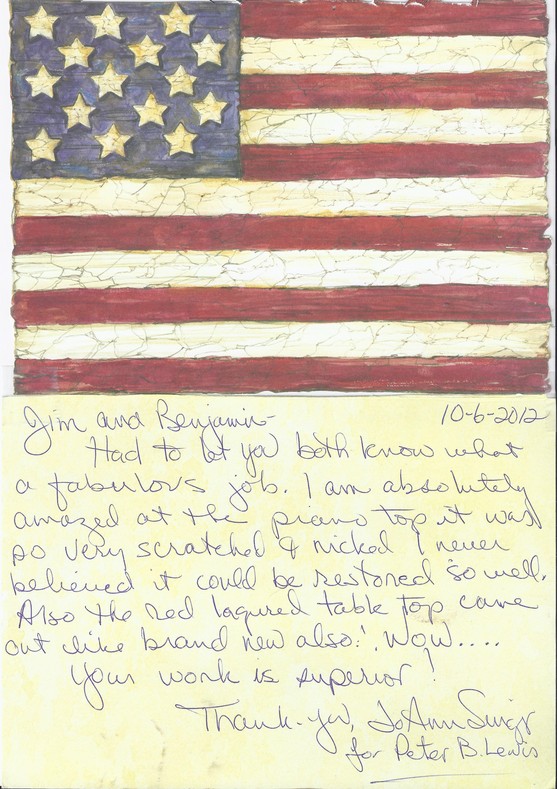 Jim and Benjamin- 10-6-2012
Had to let you both know what
a fabulous job. I am absolutely
amazed at the piano top it was
so very scratched & nicked I never
believed it could be restored so well.
Also the red laqured table top came
out like brand new also!. Wow....
Your work is superior!
Thank-you, JoAnn
for Peter B. Lewis